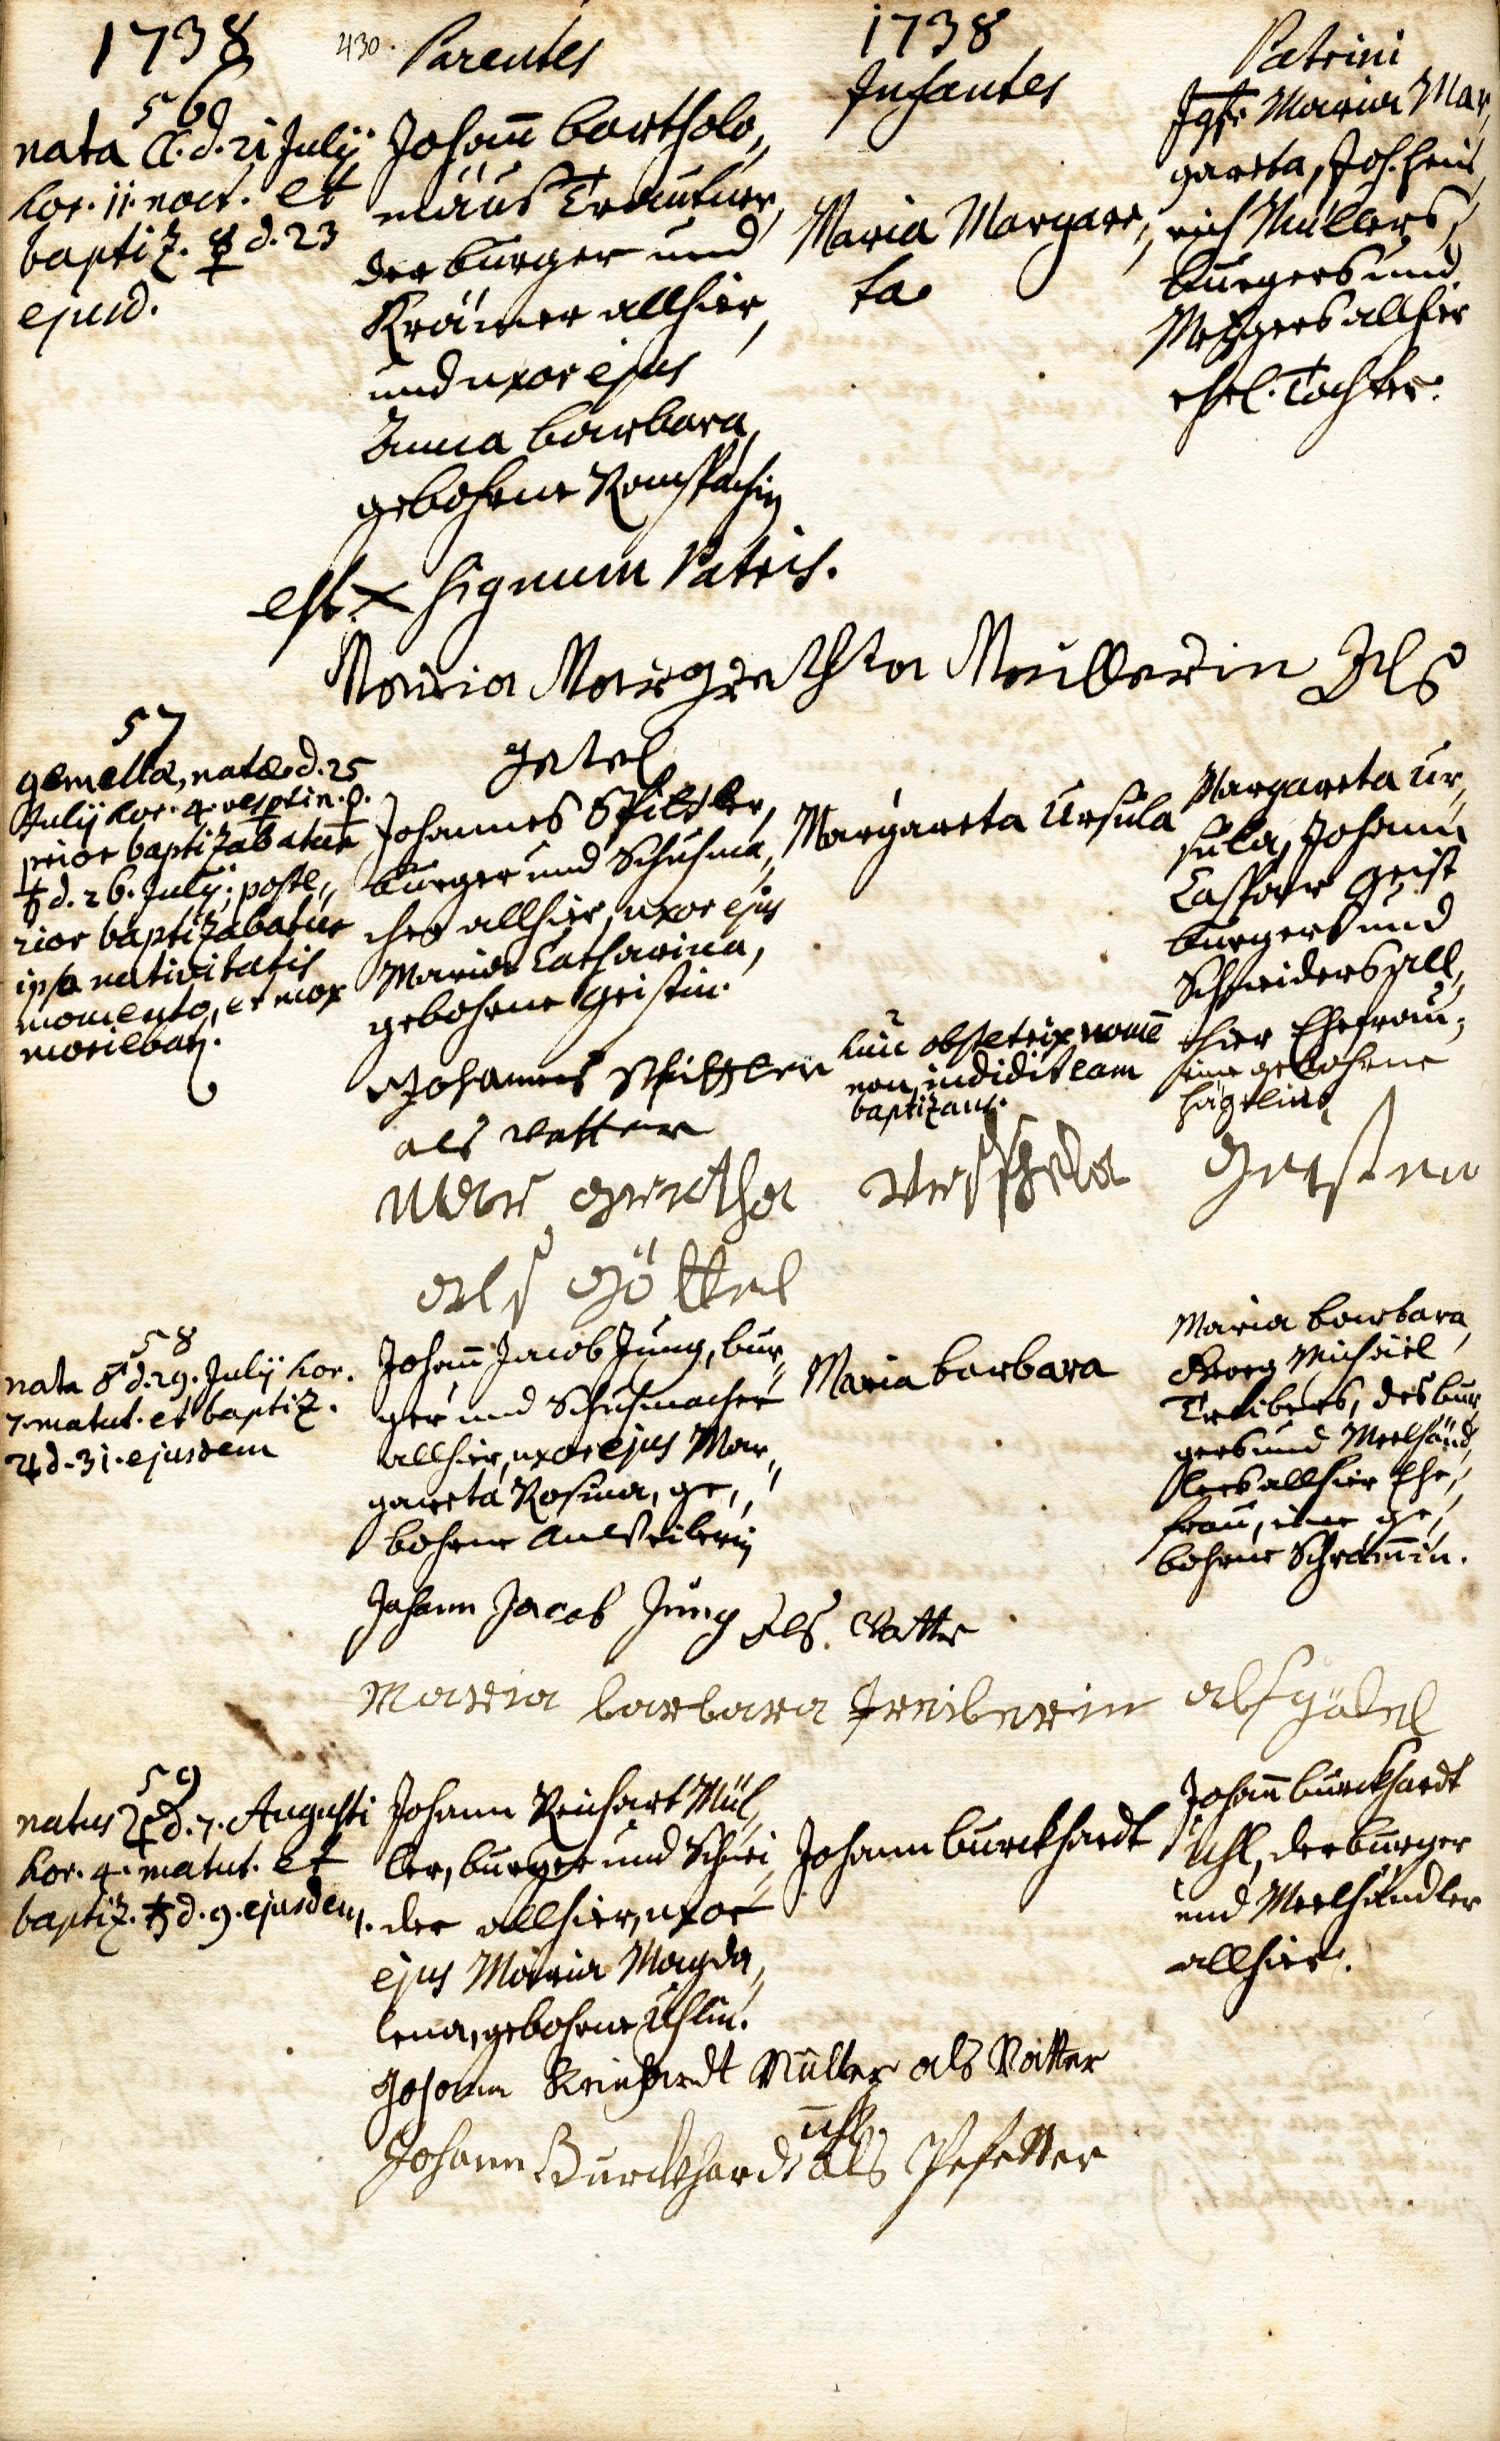 1738
430.
Parentes
1738
Infantes
Patrini
56
nata ☾. d. 21 Julij
hor. 11. noct. et
baptiz. ☿ d. 23
ejusd.
Johan̄ Bartholo„
mäus Trautner,
der burger und
Krämer allhier,
und uxor ejus
Anna Barbara,
gebohrne
est × signum Patris.
Maria Margare„
ta
Jgfr. Maria Mar„
gareta, Joh. Hein„
rich Müllers,
burgers und
Metzgers allhier
ehel. Tochter.
Maria Margretha Müllerin Als
Getel
57
gemellæ, natæ d. 25
Julij hor. 4. vesptin. ♀.
prior baptizabatur
♄ d. 26. Julij; poste„
rior baptizabatur
ipso nativitatis
momento, et mox
moriebatr.
Johannes Spitzler,
burger und Schuhma„
cher allhier, uxor ejus
Maria Catharina,
gebohrne Geistin.
Margareta Ursula
2
huic obstetrix nomē
non indidit eam
baptizans.
Margareta Ur„
sula, Johann
Caspar Geist
burgers und
Schneiders all„
hier Ehefrau,
eine gebohrne
Hägelin
Johannes Spitzler
als Vatter
Mar gretha Urschela Geisten
als Göttel
58
nata ♂ d. 29. Julij hor.
7. matut. et baptiz.
♃ d. 31. ejusdem
Johan̄ Jacob Jung, bur„
ger und Schuhmacher
allhier, uxor ejus Mar„
gareta Rosina, ge„
bohrne Anweilerin
Maria Barbara
Maria Barbara,
Georg Michäel
Treibers, des bur„
gers und Meelhänd„
lers allhier Ehe„
frau, eine ge„
bohrne Schram̄in.
Johann Jacob Jung Als. Vatter
Maria barbara Treiberin als gödel
59
natus ♃ d. 7. Augusti
hor. 4. matut. et
baptiz. ♄ d. 9. ejusdem.
Johann Reichart Mül„
ler, burger und Schnei„
der allhier, uxor
ejus Maria Magda„
lena, gebohrne Uhlin.
Johann Burckhardt
Johan̄ Burckhardt
Uhl, der burger
und Meelhändler
allhier.
Johann Reinhardt Müller als Vatter
Uhl
Johann Burckhardt als Pfetter